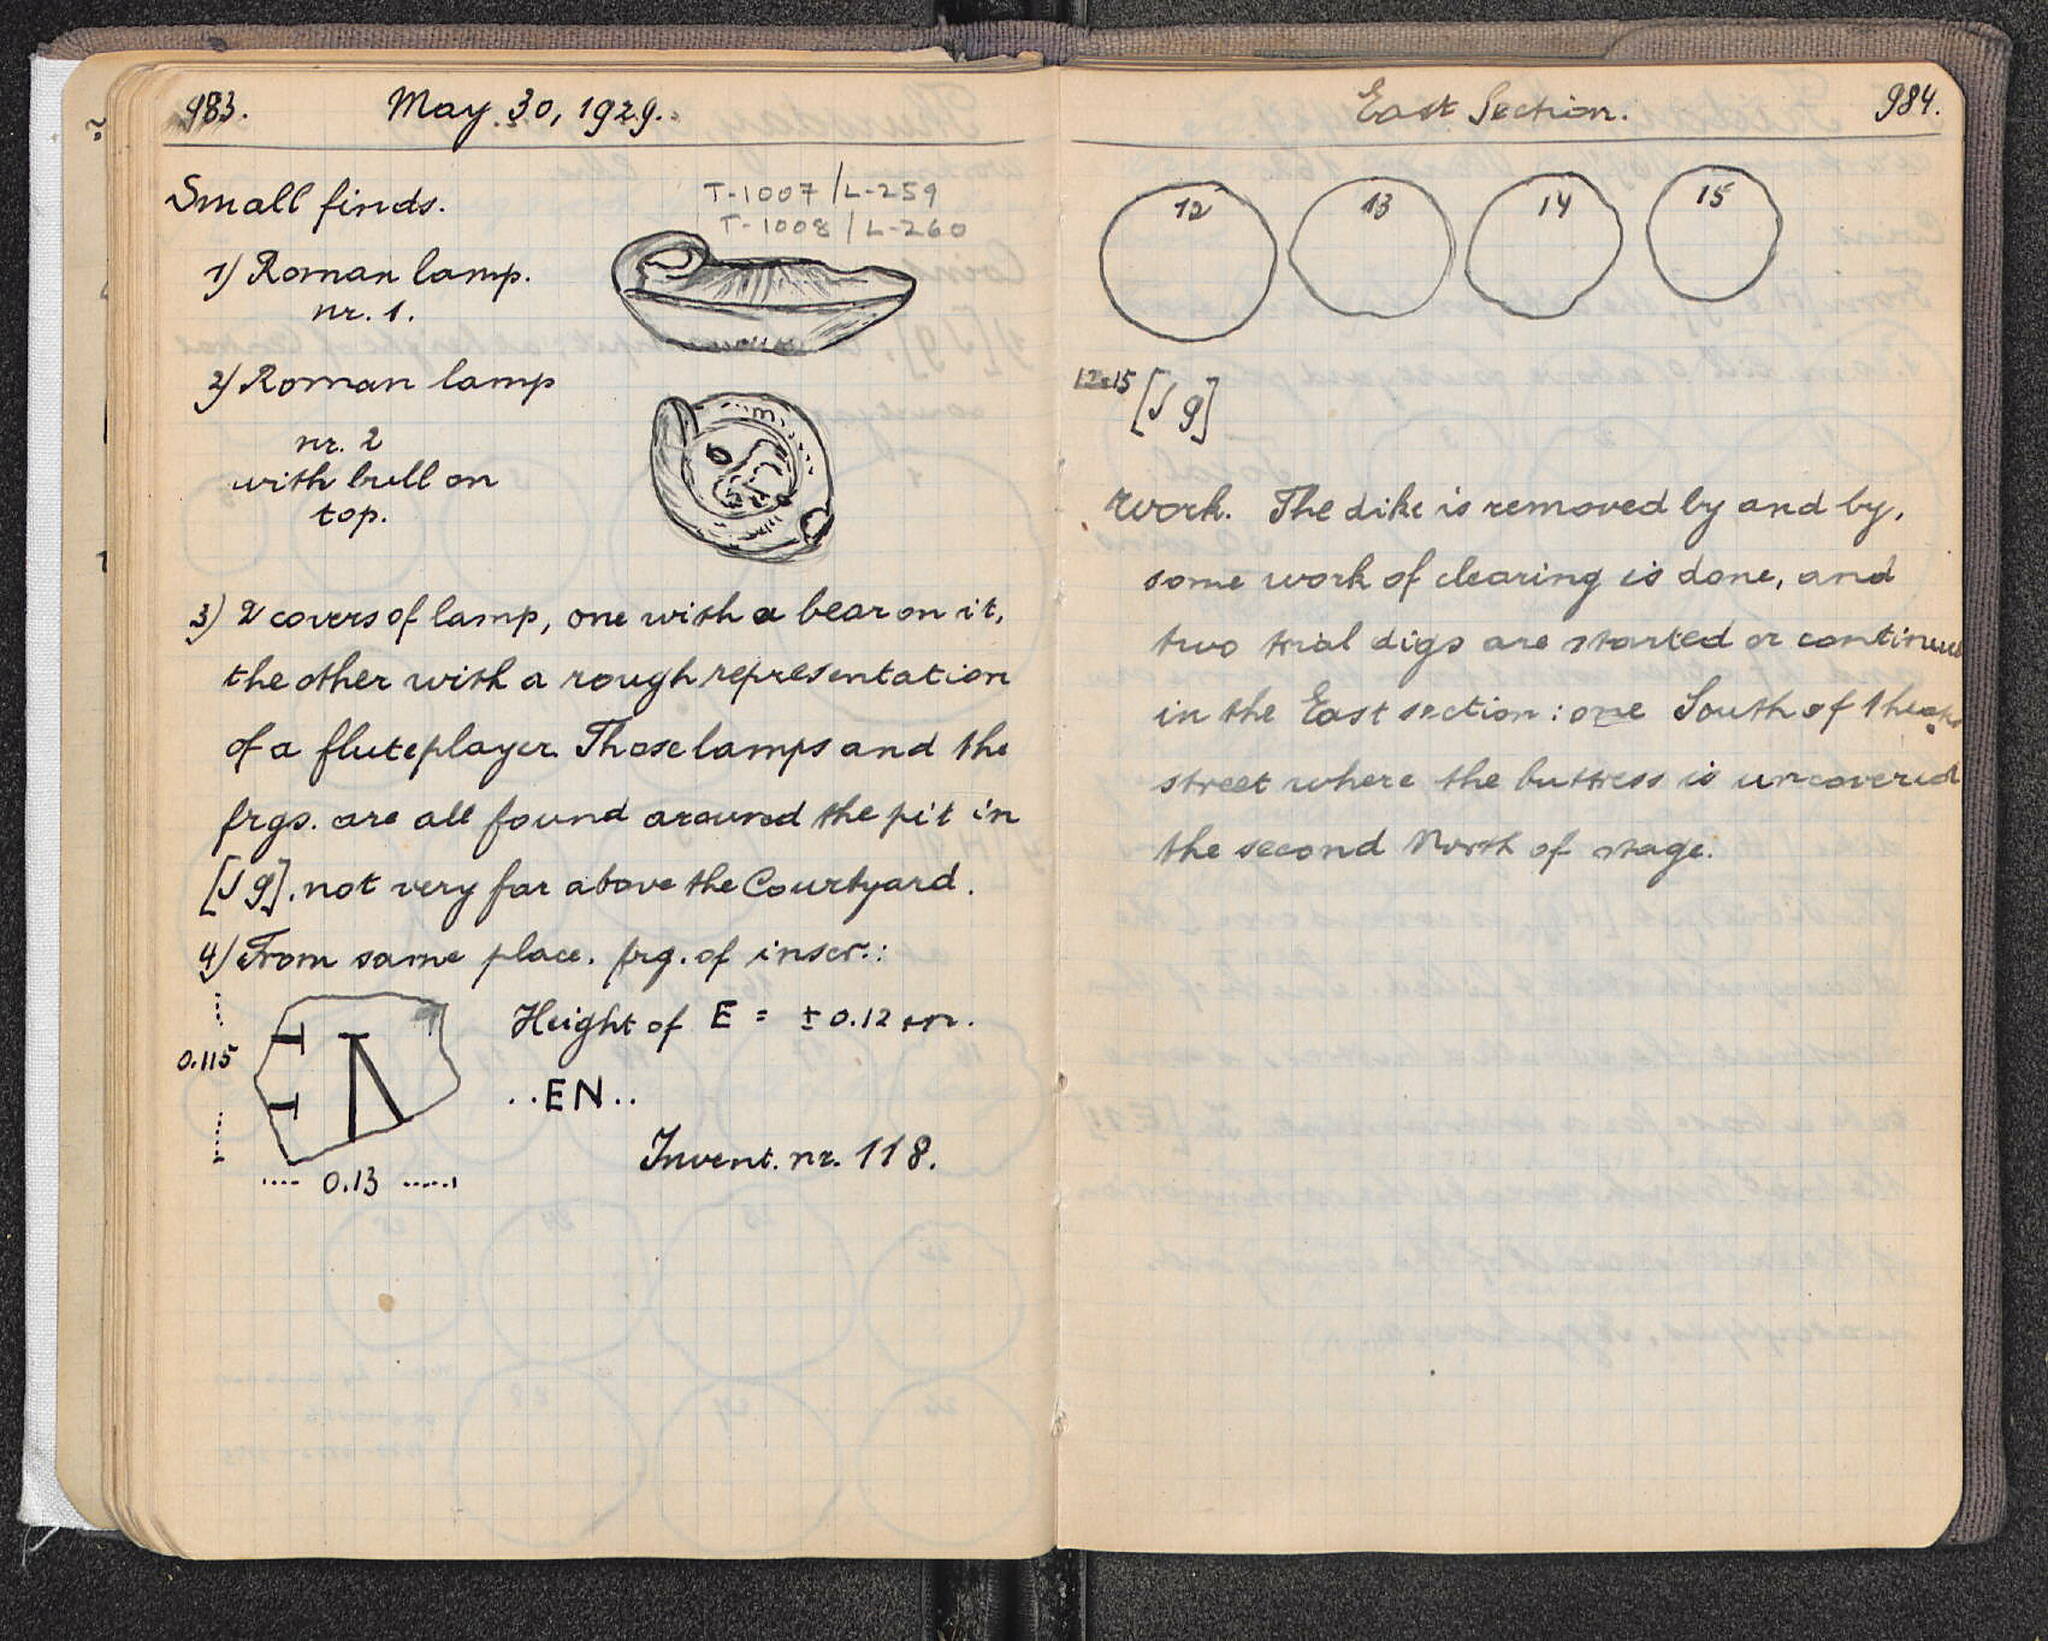 983. May 30, 1929.
Small finds.
T-1007/L-259
T-1008/L-260
1) Roman lamp.
nr. 1.
2) Roman lamp
nr. 2
with bull on
top.
3) 2 covers of lamp, one with a bear on it,
the other with a rough representation
of a fluteplayer. Those lamps and the
frgs. are all found around the pit in
[J g], not very far above the Courtyard.
4) From same place. frg. of inscr.:
Height of E = ± 0.12 m.
0.115
..EN..
Invent. nr. 118.
0.13
East Section. 984.
12 13 14 15
12-15 [J g]
Work. The dike is removed by and by,
some work of clearing is done, and
two trial digs are started or continued
in the East section: one South of
street where the buttress is uncovered
the second North of stage.